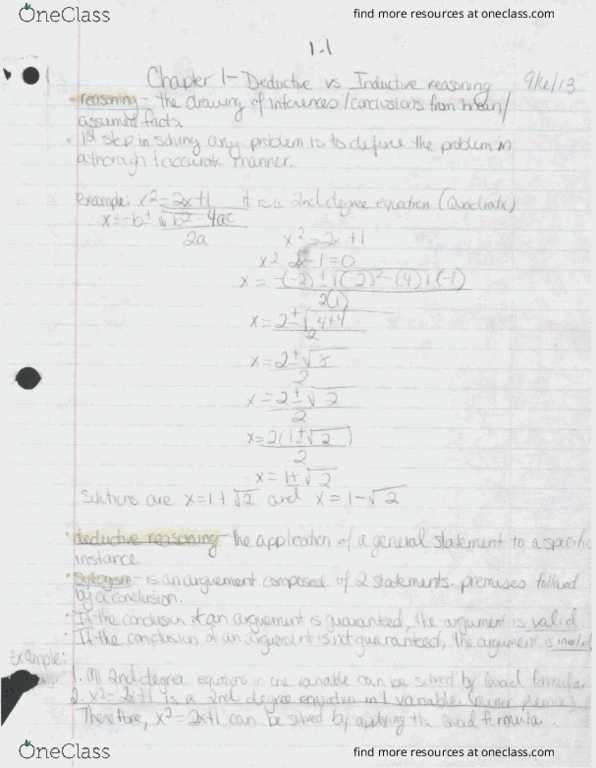 OneClass find more resources at oneclass.com
1.1
Chapter 1 - Deductive vs Inductive reasoning
- reasoning - the drawing of inferences/conclusions from known/
assumed facts.
1st step in solving any problem is to define the problem in
a thorough & accurate manner.
example: x² = 2x+1 it is a 2nd degree equation (Quadratic)
x = -b ± √b² - 4ac
2a
x² = 2x + 1
x² - 2x - 1 = 0
x = -(-2) ± √(2)² - (4)1(-1)
2(1)
x = 2 ± √4+4
2
x = 2 ± √8
2
x = 2 ± √2
2
x = 2(1 ± √2)
2
x = 1 ± √2
Solutions are x = 1 + √2 and x = 1 - √2
deductive reasoning - the application of a general statement to a specific
instance
syllogism - is an arguement composed of 2 statements. premises followed
by a conclusion.
If the conclusion of an arguement is guaranteed, the argument is valid
If the conclusion of an arguement is not guaranteed, the argument is invalid
example:
1. all 2nd degree equations in one variable can be solved by quad formula.
2. x² = 2x+1 is a 2nd degree equation in 1 variable. (minor premise)
Therefore, x² = 2x+1 can be solved by applying the quad formula.
OneClass find more resources at oneclass.com